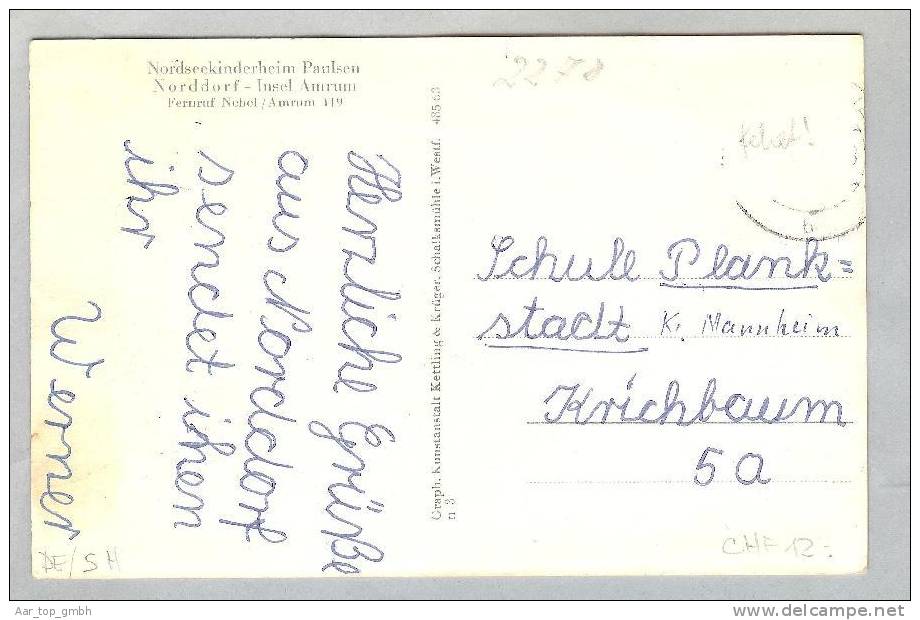 Nordseekinderheim Paulsen
Norddorf - Insel Amrum
Fernruf Nebel/Amrum 119
Herzliche Grüße
aus Norddorf
sendet ihen
ihr
Werner
Graph. Kunstanstalt Kettling & Krüger, Schalksmühle i. Westf. 485 63
n 3
2278
Schule Plank=
stadt K. Mannheim
Krichbaum
5a
DE/SH
CHF 12.-
Aar_top_gmbh
www.delcampe.net